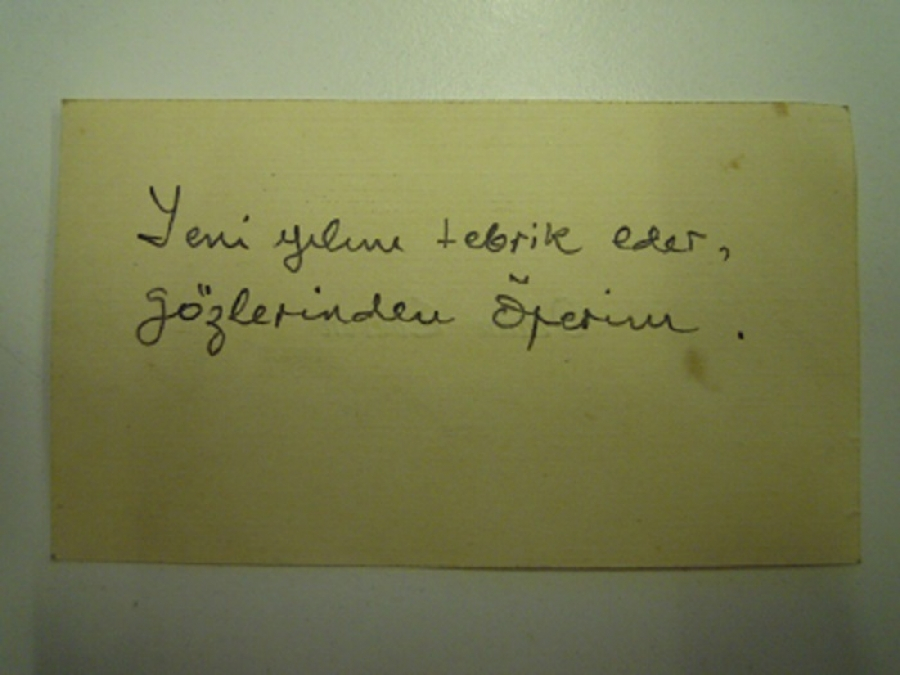 Yeni yılını tebrik eder,
gözlerinden Öperim.